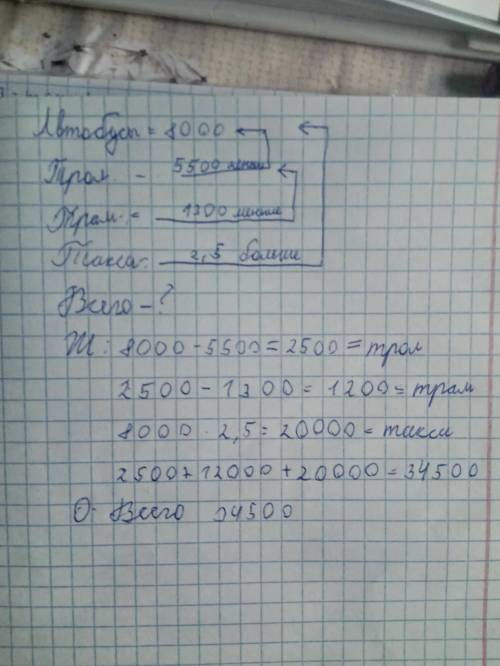 Автобусы = 8000
Трол. - 5500 меньше
Трам. - 1300 меньше
Такса: 2,5 больше
Всего - ?
Ж: 8000 - 5500 = 2500 = трол
2500 - 1300 = 1200 = трам
8000 · 2,5 = 20000 = такси
2500 + 12000 + 20000 = 34500
О: Всего 34500